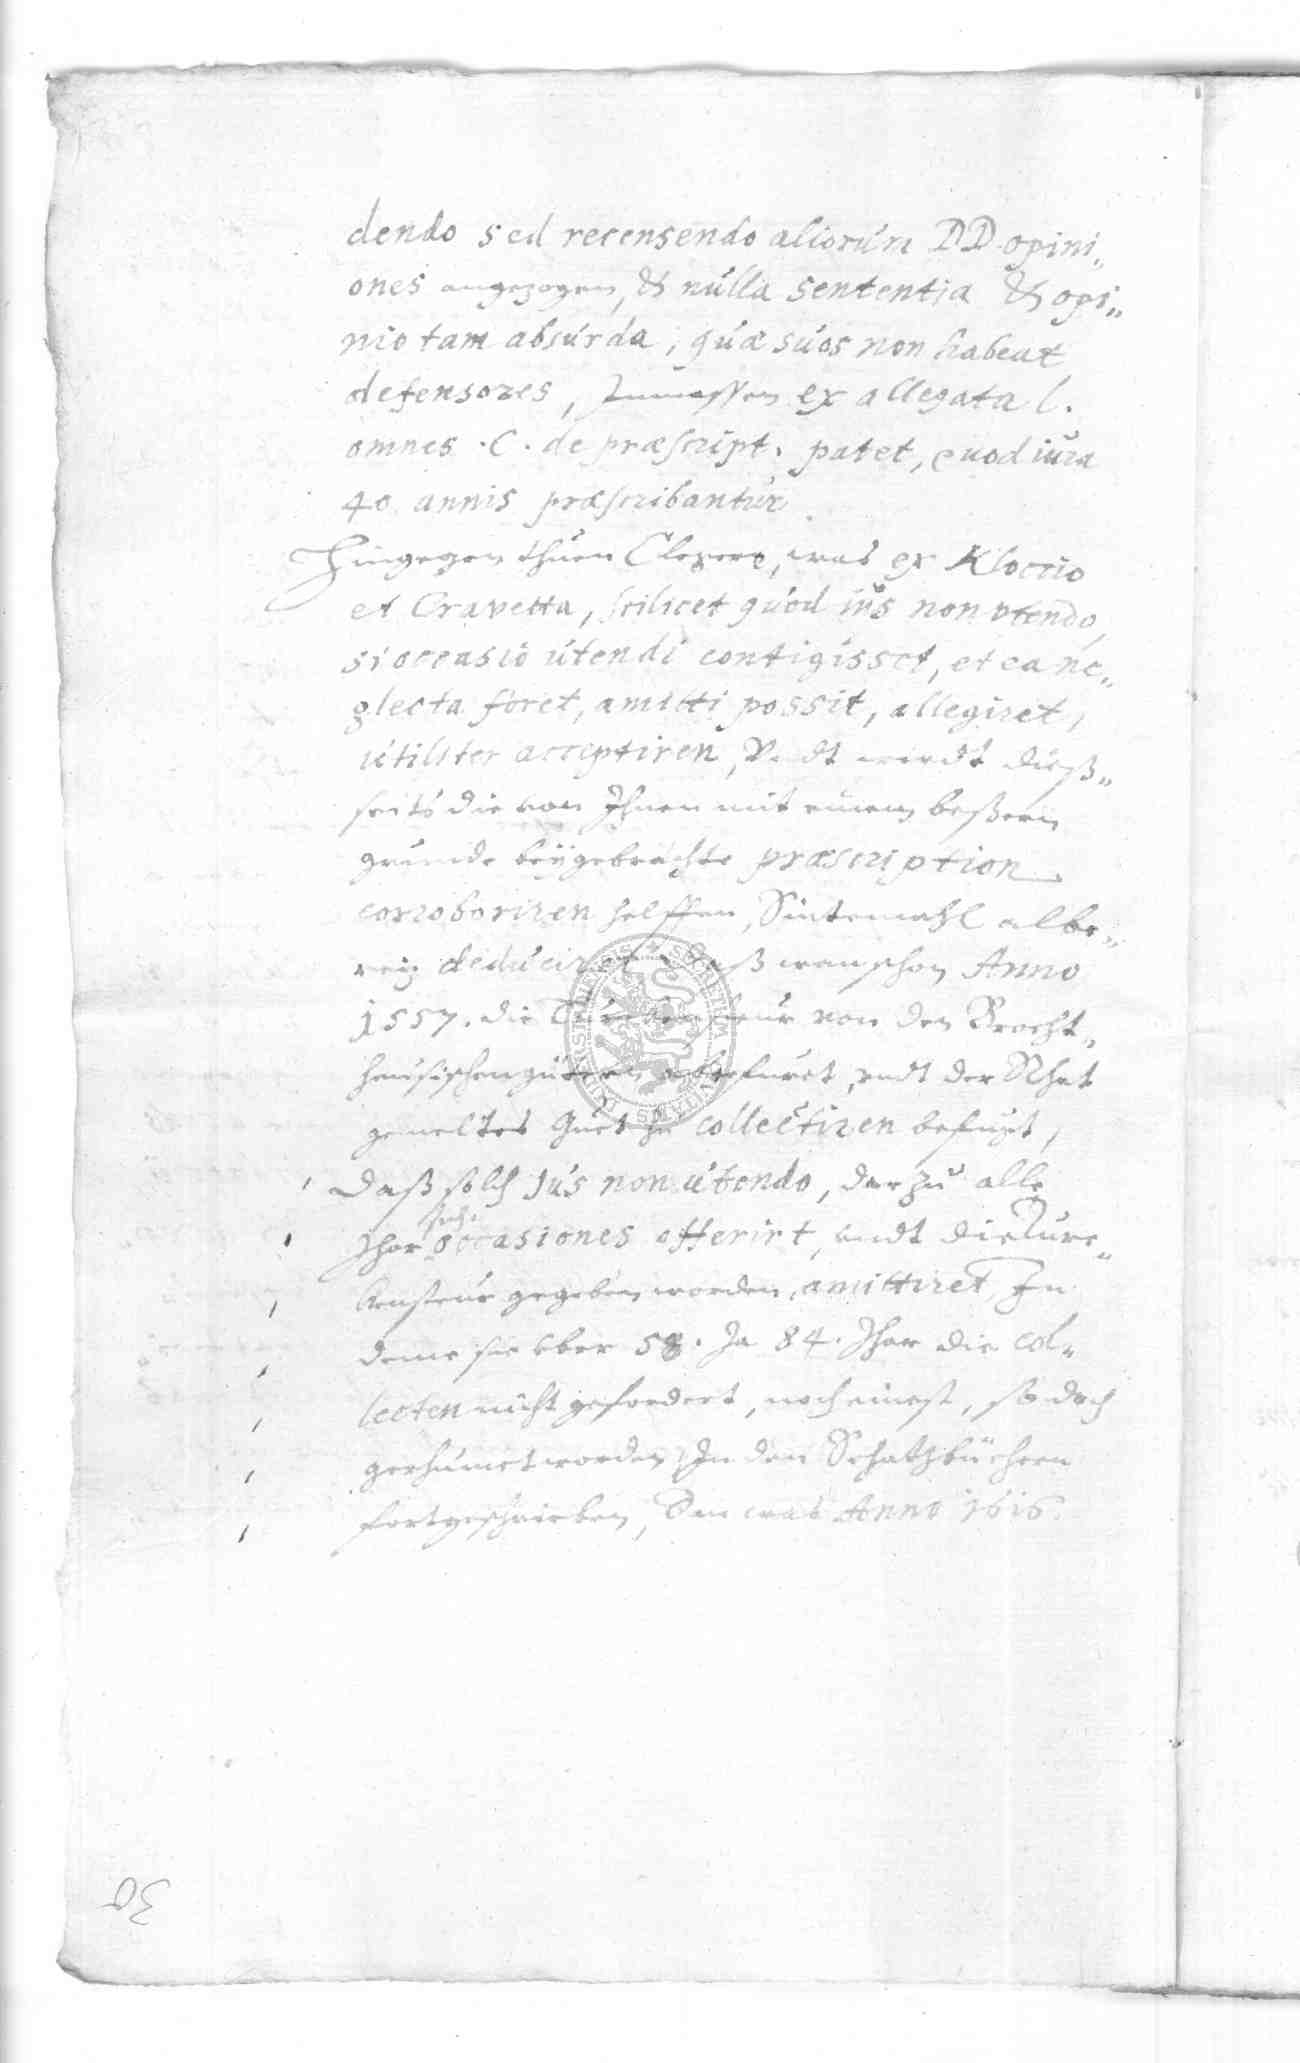 dendo sed recensendo aliorum DD. opini„
ones angezogen, & nulla sententia & opi„
nio tam absurda, quæ suos non habeat
defensores, Inmassen ex allegata l.
omnes . C . de præscript. patet, quod iura
40. annis præscribantur.
Hingegen thuen Clegere, was ex Kloccio
et Cravetta, scilicet quod ius non utendo,
si occasio utendi contigisset, et ea ne„
glecta foret, amitti possit, allegiret,
utiliter acceptiren, Vndt wirdt dieß„
seits die von Ihnen mit einem beßern
grunde beÿgebrachte præscription
corroboriren helffen, Sintemahl albe„
reiz deduciret daß wan schon Anno
1557. die Turckensteur von den Brocht„
hausischen gütern, vndt der Rhat
gemeltes Guet zu collectiren befugt,
Daß solch Jus non utendo, dar zu alle
Jhar occasiones offerirt, vndt die Turc„
kensteur gegeben worden, amittiret, In
deme sie vber 58. Ja 84. Jhar die col„
lecten nicht gefordert, noch einest, so doch
gerhumet worden, In den Schatzbüchern
fortgeschrieben, Den was Anno 1616.
SECRETUM CIVITATIS DUDERSTADENSIS
30